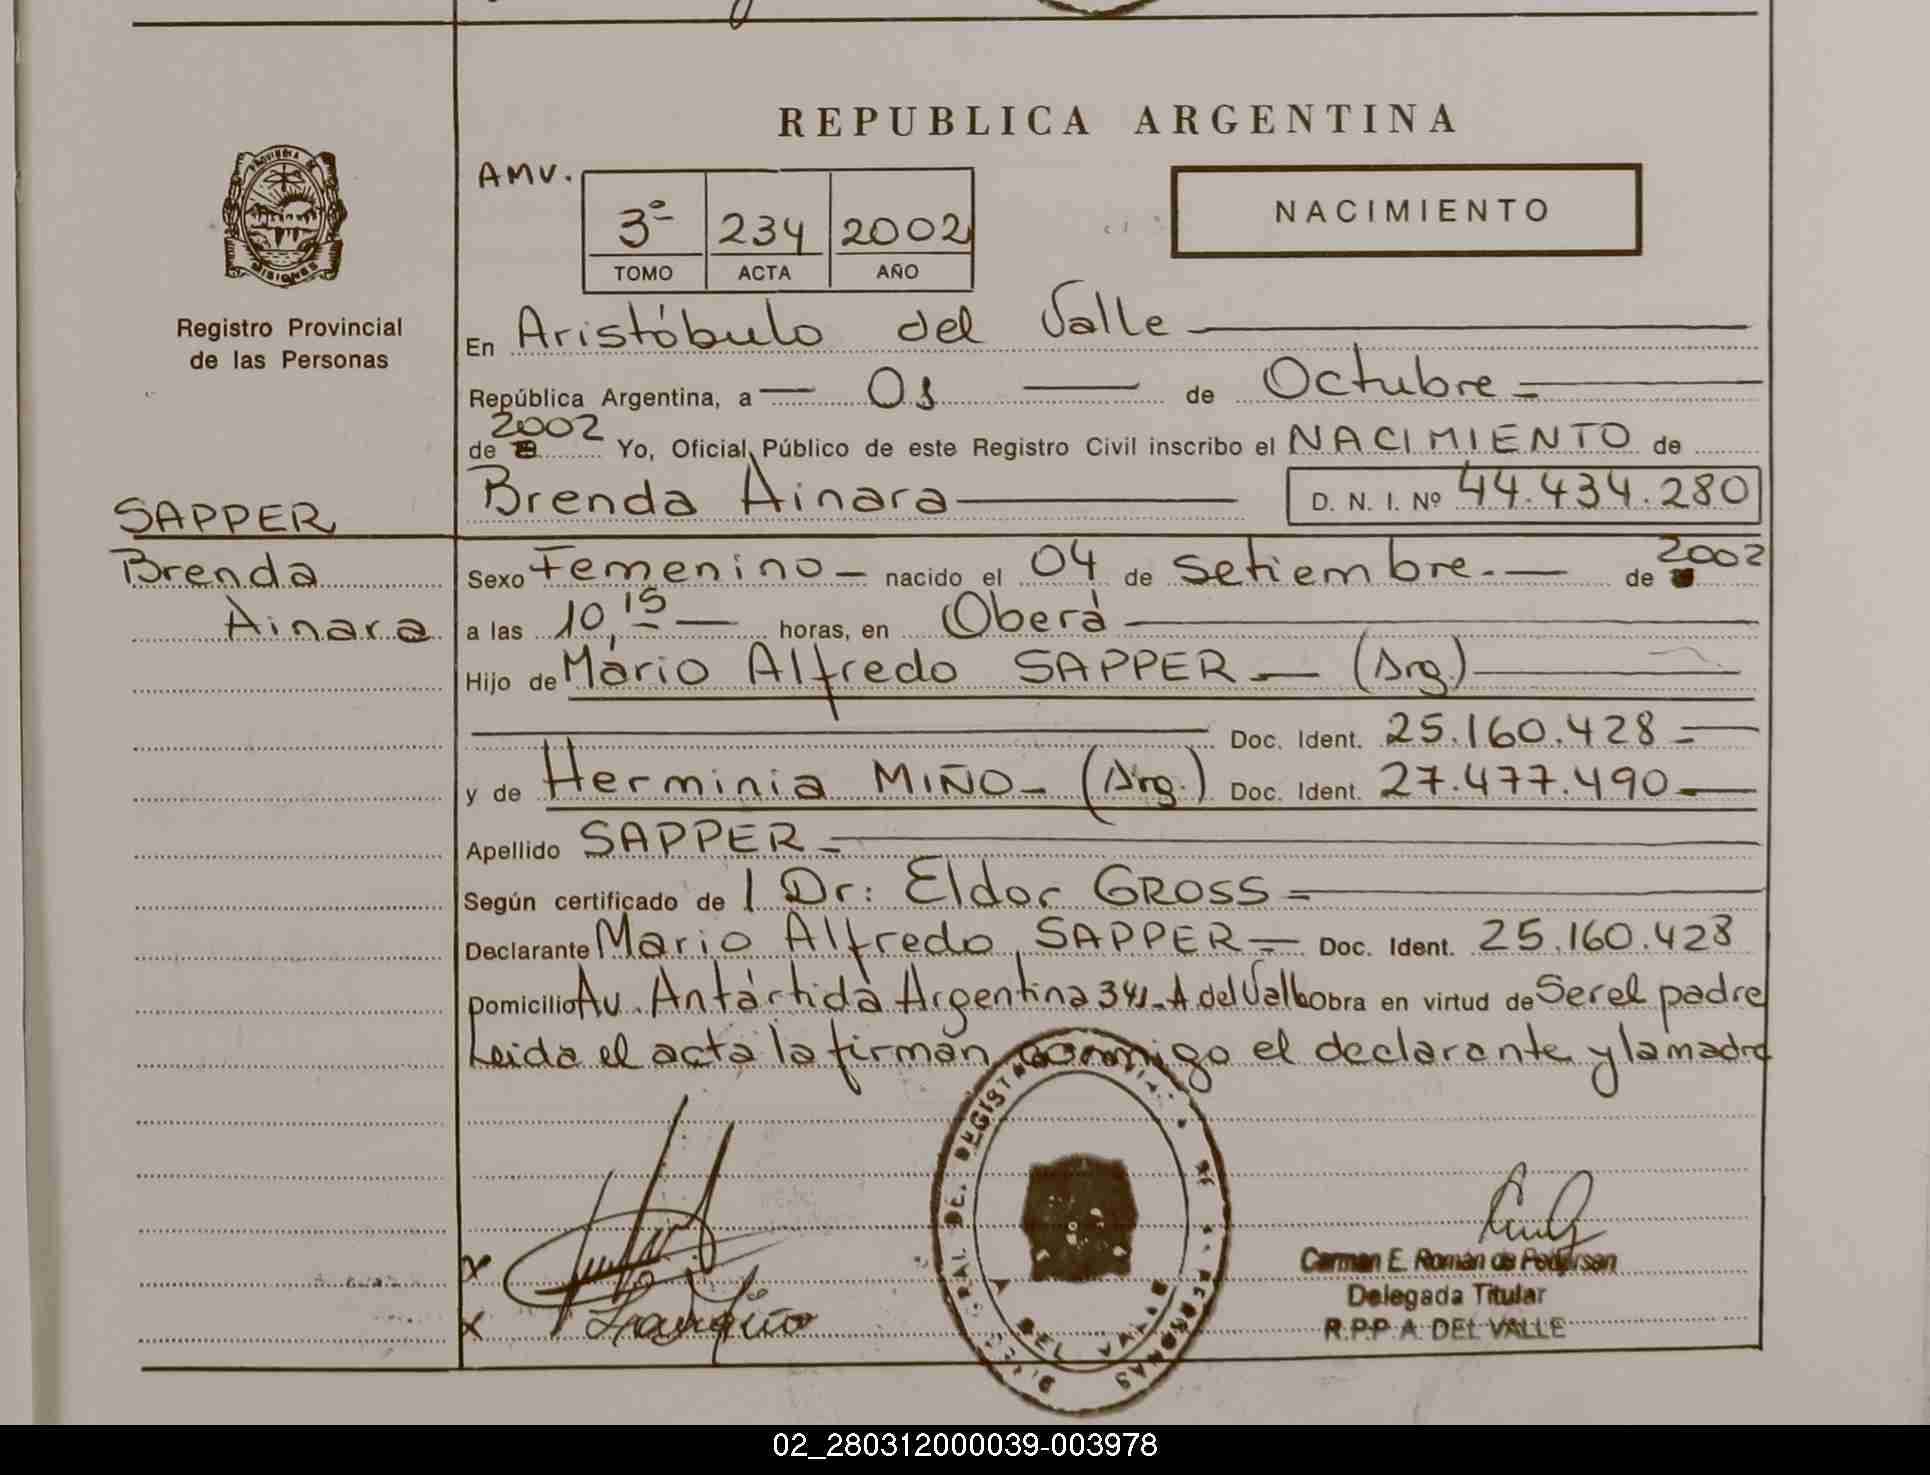 REPUBLICA ARGENTINA
AMV.
3º 234 2002
TOMO ACTA AÑO
NACIMIENTO
PROVINCIA DE
MISIONES
Registro Provincial
de las Personas
En Aristóbulo del Valle
República Argentina, a 01 de Octubre
de 2002 Yo, Oficial Público de este Registro Civil inscribo el NACIMIENTO de
Brenda Ainara D. N. I. Nº 44.434.280
SAPPER
Brenda
Ainara
Sexo Femenino nacido el 04 de Setiembre. de 2002
a las 10,15 horas, en Oberá
Hijo de Mario Alfredo SAPPER (Arg.)
Doc. Ident. 25.160.428
y de Herminia MIÑO (Arg.) Doc. Ident. 27.477.490
Apellido SAPPER
Según certificado de l Dr: Eldor GROSS
Declarante Mario Alfredo SAPPER Doc. Ident. 25.160.428
Domicilio Av. Antártida Argentina 341 A del Valle obra en virtud de Ser el padre
Leida el acta la firman conmigo el declarante y la madre
X
X
DEL VALLE
Carmen E. Román de Pedersen
Delegada Titular
R.P.P A. DEL VALLE
02_280312000039-003978